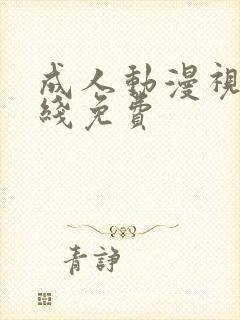 成人動漫視
綫免費
青諍